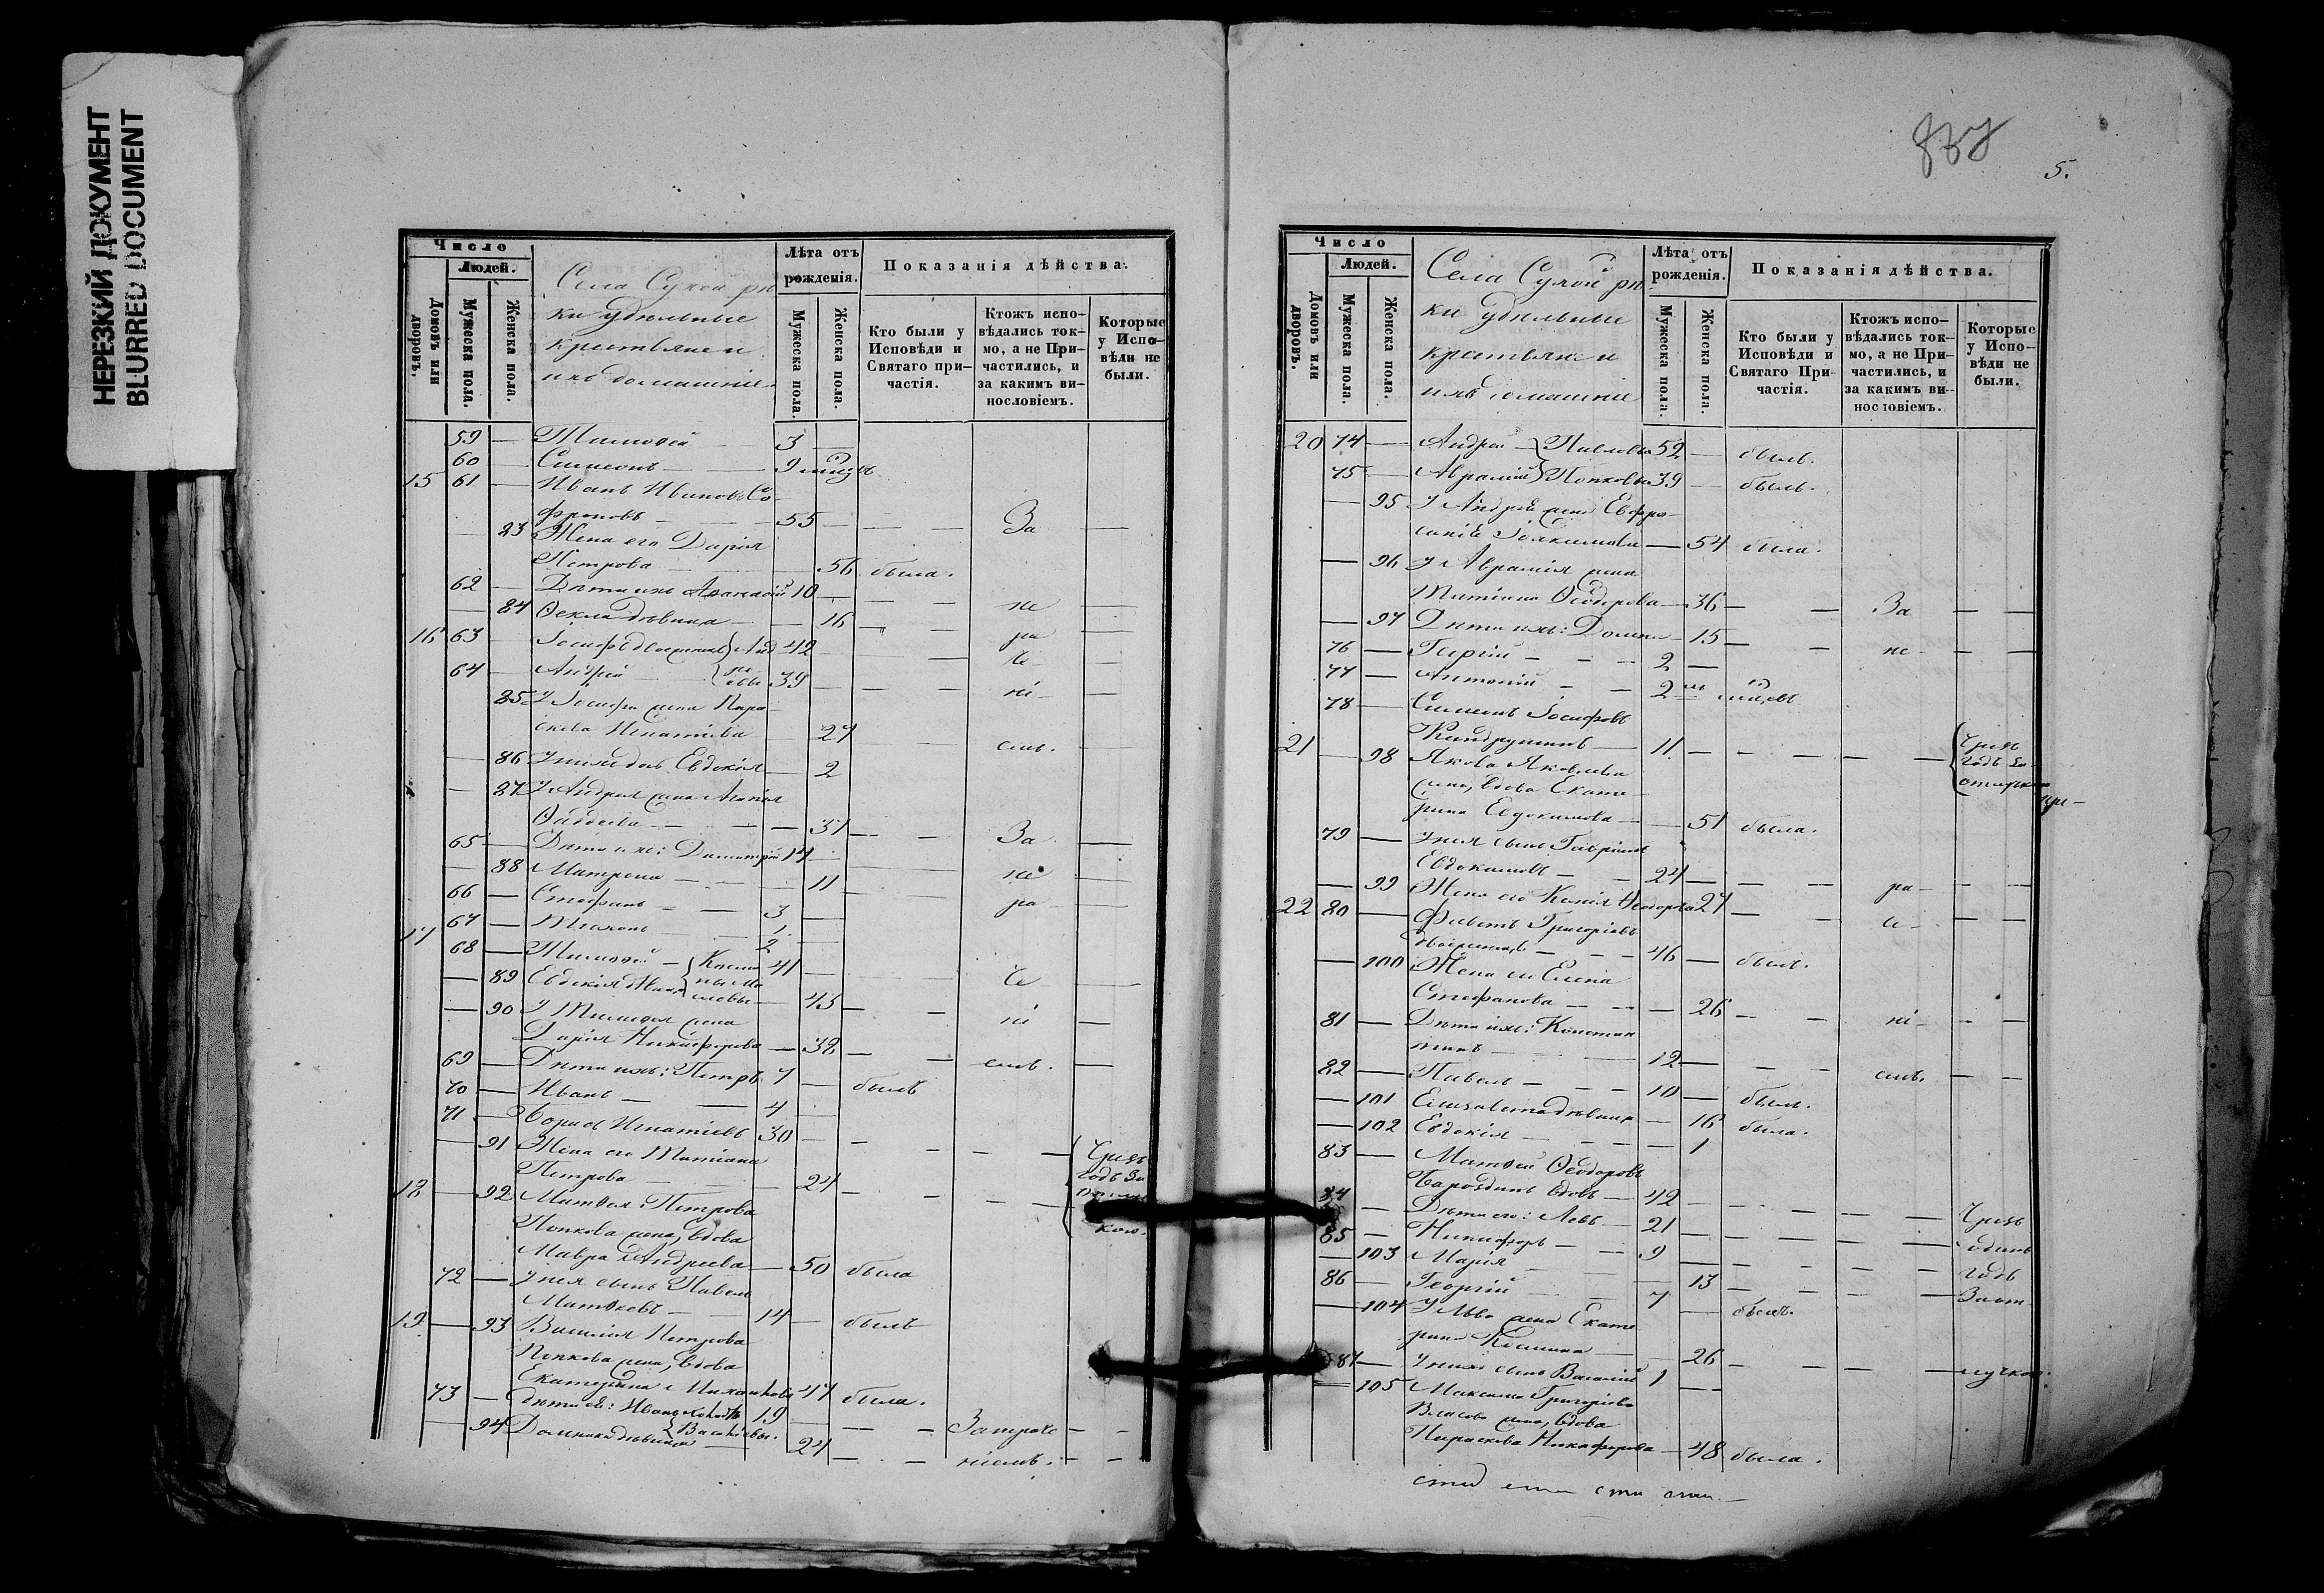 НЕРЕЗКИЙ ДОКУМЕНТ
BLURRED DOCUMENT
Число
Людей.
Домовъ или дворовъ.
Мужеска пола.
Женска пола.
Села Сухой рѣ-
ки удѣльные
крестьяне и
ихъ домашніе.
Лѣта отъ рожденія.
Мужеска пола.
Женска пола.
Показанія дѣйства.
Кто были у Исповѣди и Святаго при-частія.
Ктожъ испо-вѣдались ток-мо, а не При-частились, и за какимъ ви-нословіемъ.
Которые у Испо-вѣди не были.
59 — Тимофей 3 —
60 — Симеонъ — 9
15 61 — Иванъ Ивановъ Со-
фроновъ — 55 — — За —
— 83 Жена его Дарія
Петрова — 56 была.
62 — Дѣти ихъ Афанасій 10 — — не —
— 84 Ѳекла дѣвица — 16 — ра —
16 63 — Іосифъ двоеженецъ 42 — — че —
64 — Андрей — 39 — — ні —
85 У Іосифа жена Пара-
скева Игнатіева 27 — емъ.
— 86 У нихъ дочь Евдокія — 2
— 87 У Андрея жена Агапія
Ѳаддеева — 37 — За —
65 — Дѣти ихъ: Димитрій 14 —
— 88 Матрона — 11 — не —
66 — Стефанъ — 3 — ра —
67 — Тихонъ — 1
17 68 — Тимофей — 41 —
— 89 Евдокія 43 — че —
— 90 У Тимофея жена
Дарія Никифорова — 38 — ні —
69 — Дѣти ихъ: Петръ 7 — былъ емъ. —
70 — Иванъ — 4 —
71 — Борисъ Игнатіевъ 30 — —
— 91 Жена его Татіана
Петрова — 24 — Чрезъ
годъ за
18 — 92 Матѳея Петрова
Попкова жена, вдова
кою.
Мавра Андреева — 50 была
72 — У нея сынъ Павелъ
Матѳеевъ — 14 — былъ
19 — 93 Василія Петрова
Попкова жена, вдова
Екатерина 47 была.
73 — Дѣти ея: Иванъ холостъ 19 —
— 94 Домника дѣвица Васильевы. 24 —
5.
Число
Людей.
Домовъ или дворовъ.
Мужеска пола.
Женска пола.
Села Сухой рѣ-
ки удѣльные
крестьяне и
ихъ домашніе
Лѣта отъ рожденія.
Мужеска пола.
Женска пола.
Показанія дѣйства.
Кто были у Исповѣди и Святаго При-частія.
Ктожъ испо-вѣдались ток-мо, а не При-частились, и за какимъ ви-нословіемъ.
Которые у Испо-вѣди не были.
20 74 — Андрей — Павловы 52 — былъ.
75 — Аврамій Попковы 39 — былъ.
— 95 У Андрея жена Евфро-
синія Іоакимова — 54 была.
— 96 У Аврамія жена
Татіана Ѳеодорова — 36 — За —
— 97 Дѣти ихъ: Домна — 15 — не —
76 — 2 —
77 — Антоній — 2
78 — Симеонъ Іосифовъ
11 — — Чрезъ
годъ за
21 — 98 Якова Яковлева
жена, вдова Екате-
рина Евдокимова — 51 была.
79 — У нея сынъ Гавріилъ
Евдокимовъ — 24 — — ра —
— 99 Жена его Ксенія Ѳеодорова 27 — че —
22 80 — Григоріевъ
двоеженецъ — 46 — былъ.
— 100 Жена его Елена
Стефанова — 26 — ні —
81 — Дѣти ихъ: Констан-
тинъ — 12 — емъ. —
82 — Павелъ — 10 — былъ.
— 101 Елизавета дѣвица — 16 была.
— 102 Евдокія — 1
83 — Матѳей Ѳеодоровъ
вдовъ — 42 — Чрезъ
84 — Дѣти его: Левъ — 21 — одинъ
85 — Никифоръ — 9 — годъ
— 103 Марія — 13 — За от-
86 — Георгій — 7 — былъ.
— 104 У Льва жена Екате-
рина 26 — лучкою.
87 — У нихъ сынъ Василій 1 —
— 105 Максима Григоріева
Власова жена, вдова
Параскева Никифорова — 48 была.